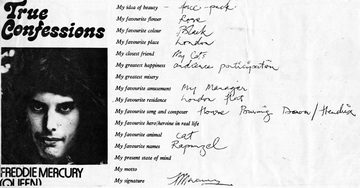 True
Confessions
FREDDIE MERCURY
(QUEEN)
My idea of beauty - face-pack
My favourite flower Rose
My favourite colour Black
My favourite place London
My closest friend My Cats
My greatest happiness audience participation
My greatest misery
My favourite amusement My Manager
My favourite residence London flat
My favourite song and composer House Burning Down / Hendrix
My favourite hero/heroine in real life
My favourite animal cat
My favourite names Rapunzel
My present state of mind
My motto
My signature